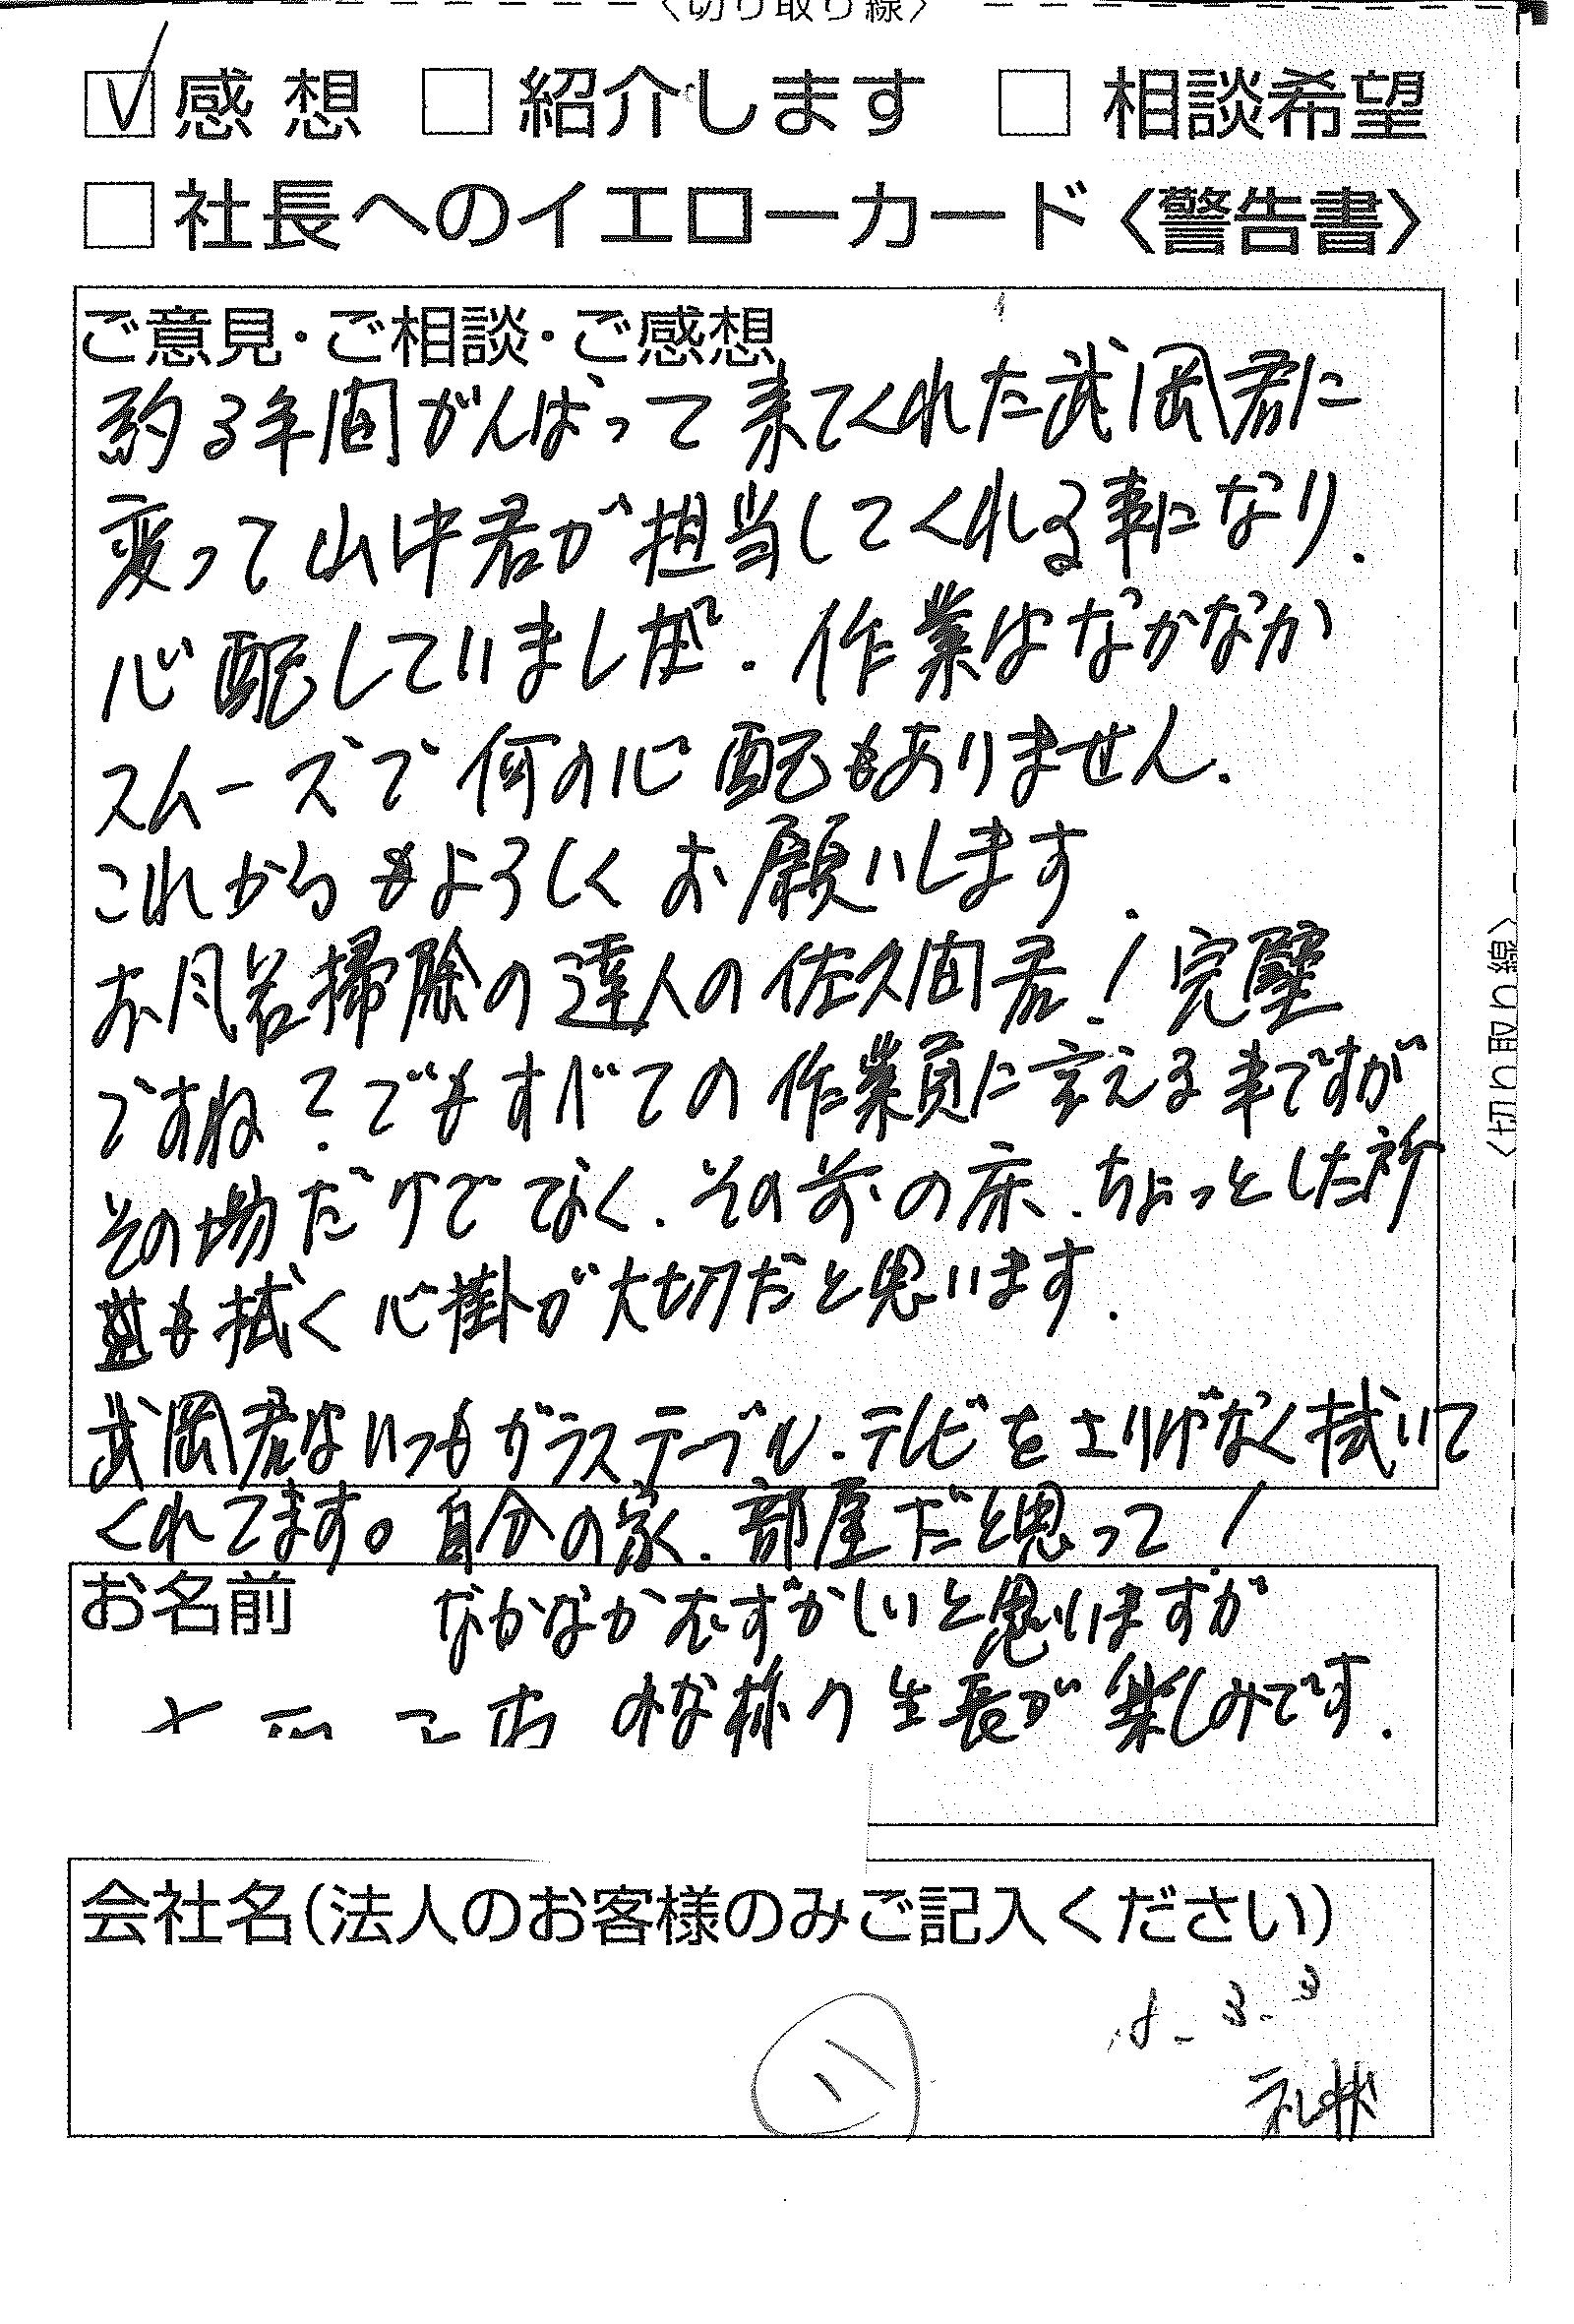 〈切り取り線〉
☑ 感 想 □ 紹介します □ 相談希望
□ 社長へのイエローカード〈警告書〉
ご意見・ご相談・ご感想
約3年間がんばって来てくれた武岡君に
変って山中君が担当してくれる事になり、
心配していましたが、作業はなかなか
スムーズで何の心配もありません。
これからもよろしくお願いします。
お風呂掃除の達人の佐久間君!完璧
ですね?でもすべての作業員に言える事ですが
その場だけでなく、その前の床、ちょっとした所
も拭く心掛が大切だと思います。
武岡君はいつもガラステーブル、テレビをさりげなく拭いて
くれてます。自分の家、部屋だと思って!
お名前
なかなかむずかしいと思いますが
みな様の生長が楽しみです。
会社名(法人のお客様のみご記入ください)
3-3
礼状
〈切り取り線〉